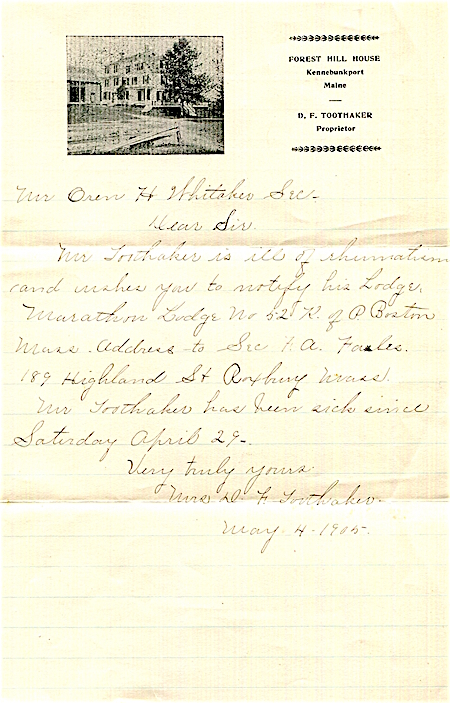 FOREST HILL HOUSE
Kennebunkport
Maine
D. F. TOOTHAKER
Proprietor
Mr Oren H Whitaker Sec.
Dear Sir.
Mr Toothaker is ill of rheumatism
and wishes you to notify his Lodge,
Marathon Lodge No 52 K. of P Boston
Mass. Address to Sec A. Fables.
189 Highland St Roxbury Mass.
Mr Toothaker has been sick since
Saturday April 29-
Very truly yours
Mrs D. F. Toothaker.
May 4-1905.